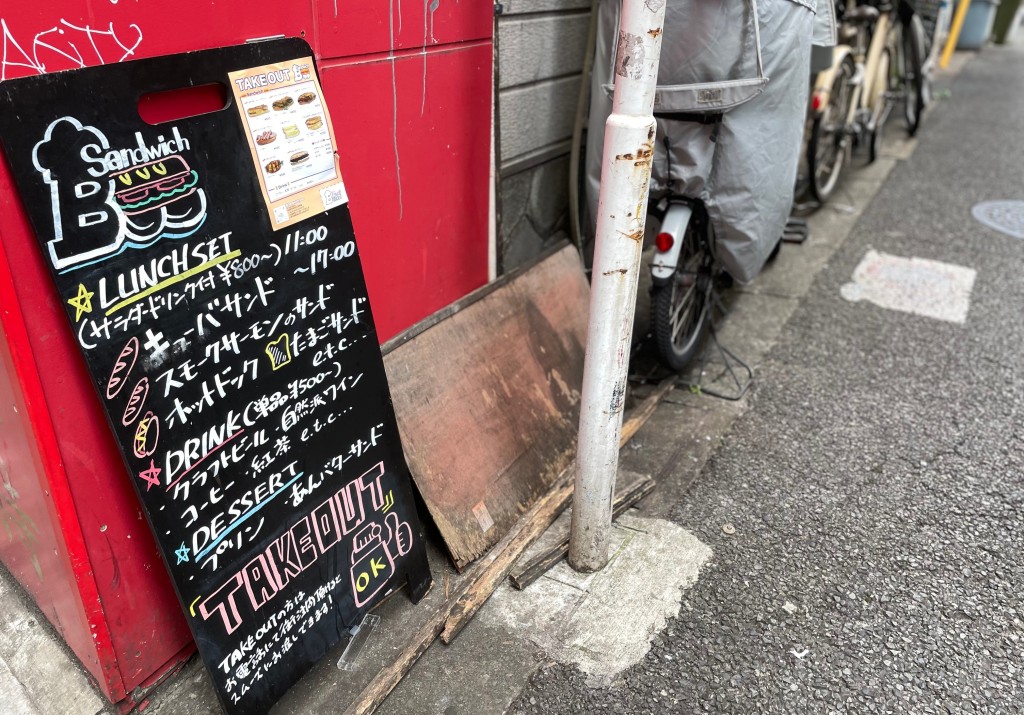 Sandwich
B
TAKEOUT B
LUNCH SET 11:00
(サラダ・ドリンク付 ¥800~) ~17:00
キューバサンド
スモークサーモンのサンド
ホットドック たまごサンド
e.t.c...
DRINK (単品¥500~)
クラフトビール・自然派ワイン
コーヒー・紅茶 e.t.c...
DESSERT
・プリン あんバターサンド
TAKEOUT
OK
TAKE OUTの方は
お電話にて御注文頂けると
スムーズにお渡しできます!